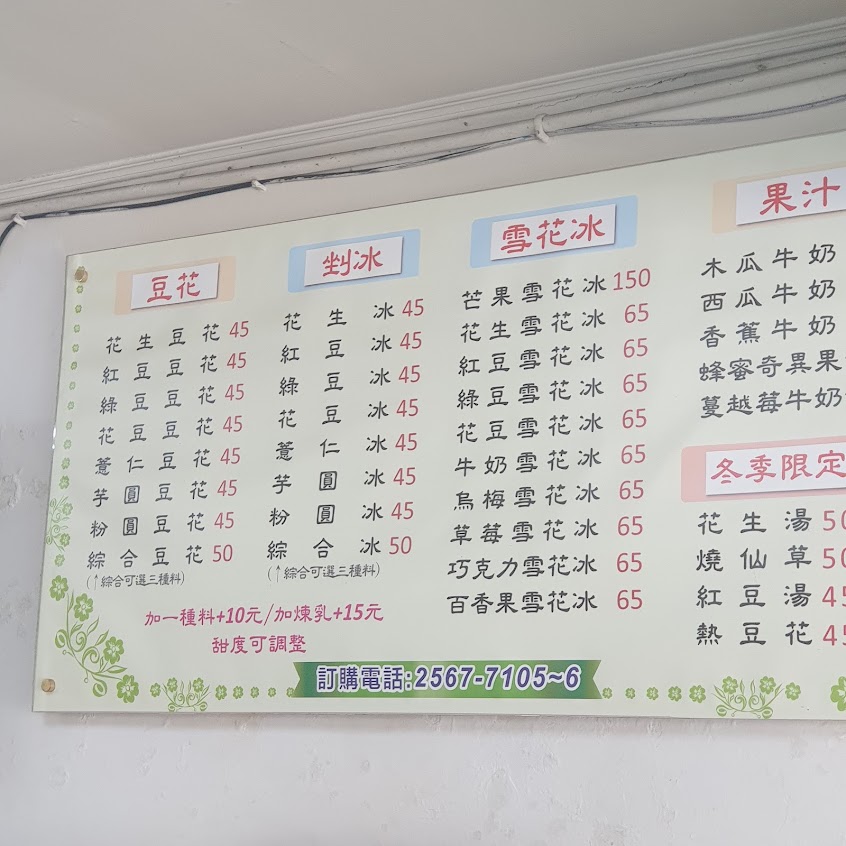 豆花
花生豆花 45
紅豆豆花 45
綠豆豆花 45
花豆豆花 45
薏仁豆花 45
芋圓豆花 45
粉圓豆花 45
綜合豆花 50
(↑綜合可選三種料)
剉冰
花生冰 45
紅豆冰 45
綠豆冰 45
花豆冰 45
薏仁冰 45
芋圓冰 45
粉圓冰 45
綜合冰 50
(↑綜合可選三種料)
加一種料+10元/加煉乳+15元
甜度可調整
雪花冰
芒果雪花冰 150
花生雪花冰 65
紅豆雪花冰 65
綠豆雪花冰 65
花豆雪花冰 65
牛奶雪花冰 65
烏梅雪花冰 65
草莓雪花冰 65
巧克力雪花冰 65
百香果雪花冰 65
果汁
木瓜牛奶
西瓜牛奶
香蕉牛奶
蜂蜜奇異果
蔓越莓牛奶
冬季限定
花生湯 50
燒仙草 50
紅豆湯 45
熱豆花 45
訂購電話:2567-7105~6